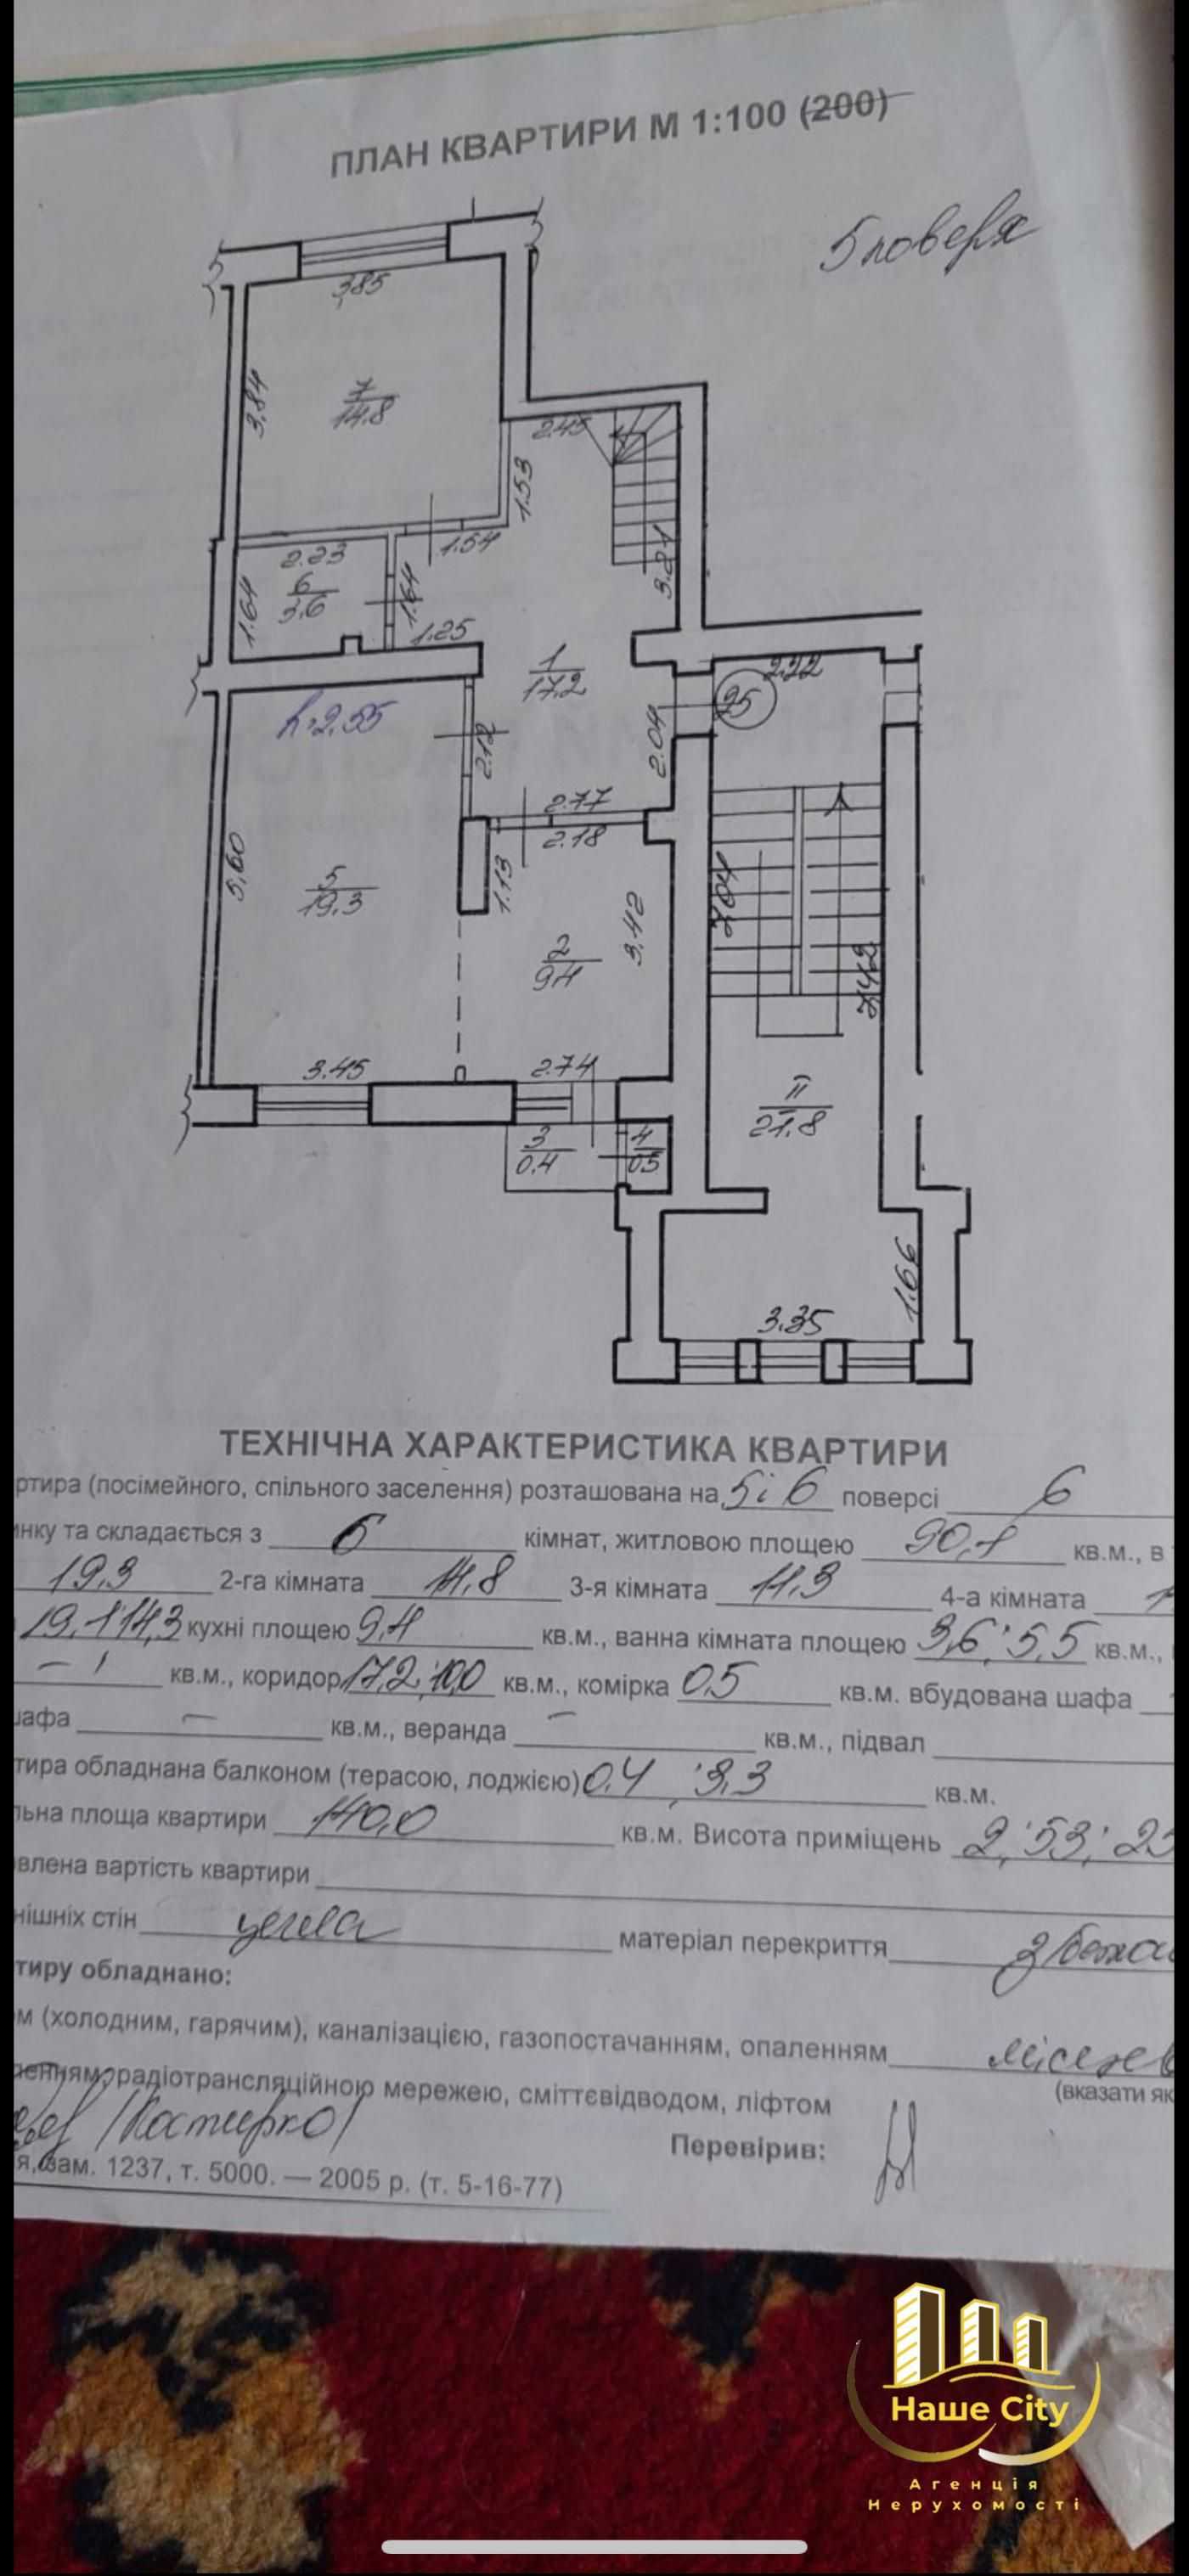 ПЛАН КВАРТИРИ М 1:100 (200)
5 поверх
3.85
3.84
7
14.8
2.45
1.53
1.54
3.21
2.23
6
3.6
1.64
1.64
1.25
1
17.2
2.22
25
h=2.55
2.12
2.04
2.77
2.18
1.13
5.60
5
19.3
3.42
2
9.4
7.42
3.45
2.74
II
21.8
3
0.4
4
0.5
1.66
3.35
ТЕХНІЧНА ХАРАКТЕРИСТИКА КВАРТИРИ
ртира (посімейного, спільного заселення) розташована на 5 і 6 поверсі 6
инку та складається з 6 кімнат, житловою площею 90,1 кв.м., в
19,3 2-га кімната 14,8 3-я кімната 11,3 4-а кімната
19,1 14,3 кухні площею 9,4 кв.м., ванна кімната площею 3,6; 5,5 кв.м.,
– кв.м., коридор 17,2; 10,0 кв.м., комірка 0,5 кв.м. вбудована шафа
шафа – кв.м., веранда – кв.м., підвал
тира обладнана балконом (терасою, лоджією) 0,4 ; 3,3 кв.м.
льна площа квартири 140,0 кв.м. Висота приміщень
влена вартість квартири
нішніх стін цегла матеріал перекриття
тиру обладнано:
м (холодним, гарячим), каналізацією, газопостачанням, опаленням
ленням, радіотрансляційною мережею, сміттєвідводом, ліфтом (вказати як
Перевірив:
я, зам. 1237, т. 5000. — 2005 р. (т. 5-16-77)
Наше City
Агенція
Нерухомості